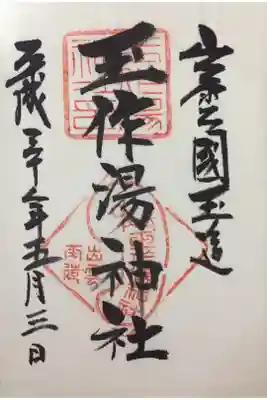 出雲之國玉造
玉作湯神社
平成三十年五月三日
出雲
玉造